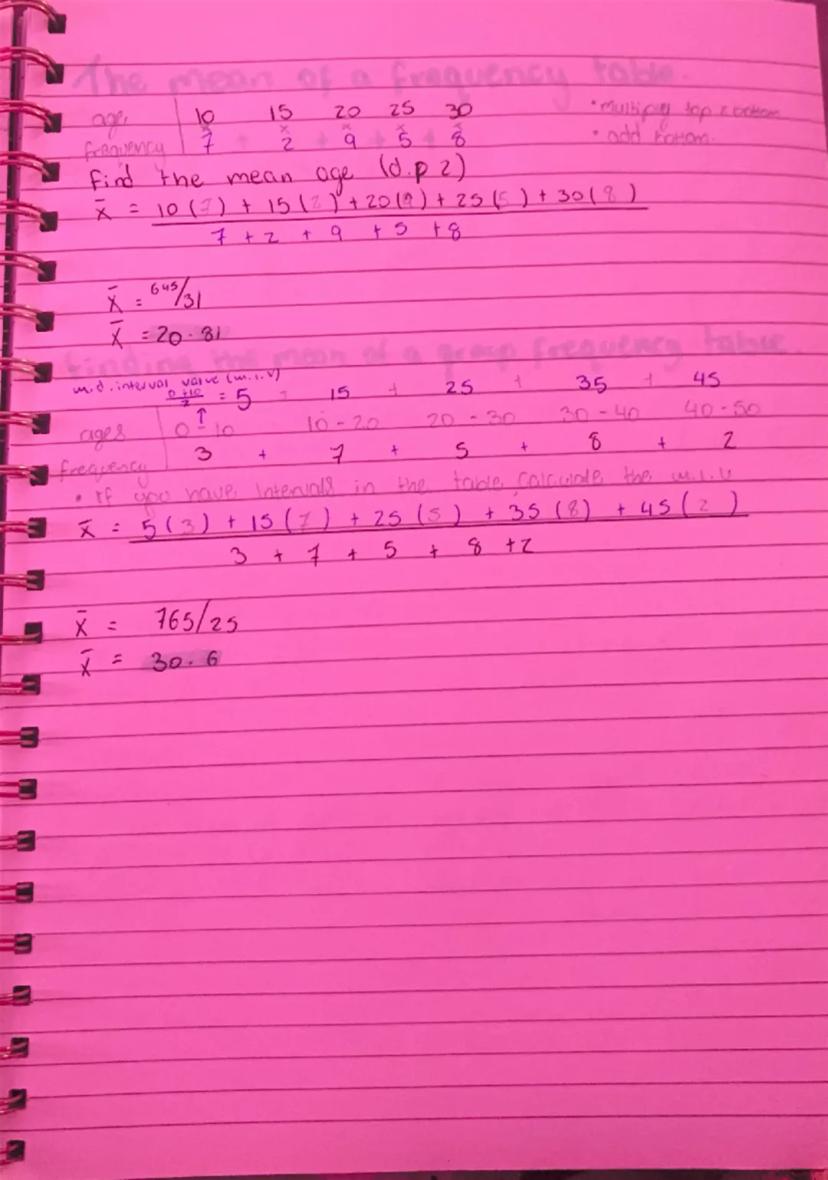 The mean of a frequency table.
age 10 15 20 25 30 • multiply top & bottom
x x x x x
frequency 7 + 2 + 9 + 5 + 8 • add bottom.
find the mean age (d.p 2)
x̄ = 10 (7) + 15 (2) + 20 (9) + 25 (5) + 30 (8)
7 + 2 + 9 + 5 + 8
x̄ = 645/31
x̄ = 20.81
finding the mean of a group frequency table.
mid.interval value (m.i.v)
0+10/2 = 5 + 15 + 25 + 35 + 45
ages 0-10 10-20 20-30 30-40 40-50
frequency 3 + 7 + 5 + 8 + 2
• If you have intervals in the table, calculate the m.i.v
x̄ = 5 (3) + 15 (7) + 25 (5) + 35 (8) + 45 (2)
3 + 7 + 5 + 8 + 2
x̄ = 765/25
x̄ = 30.6